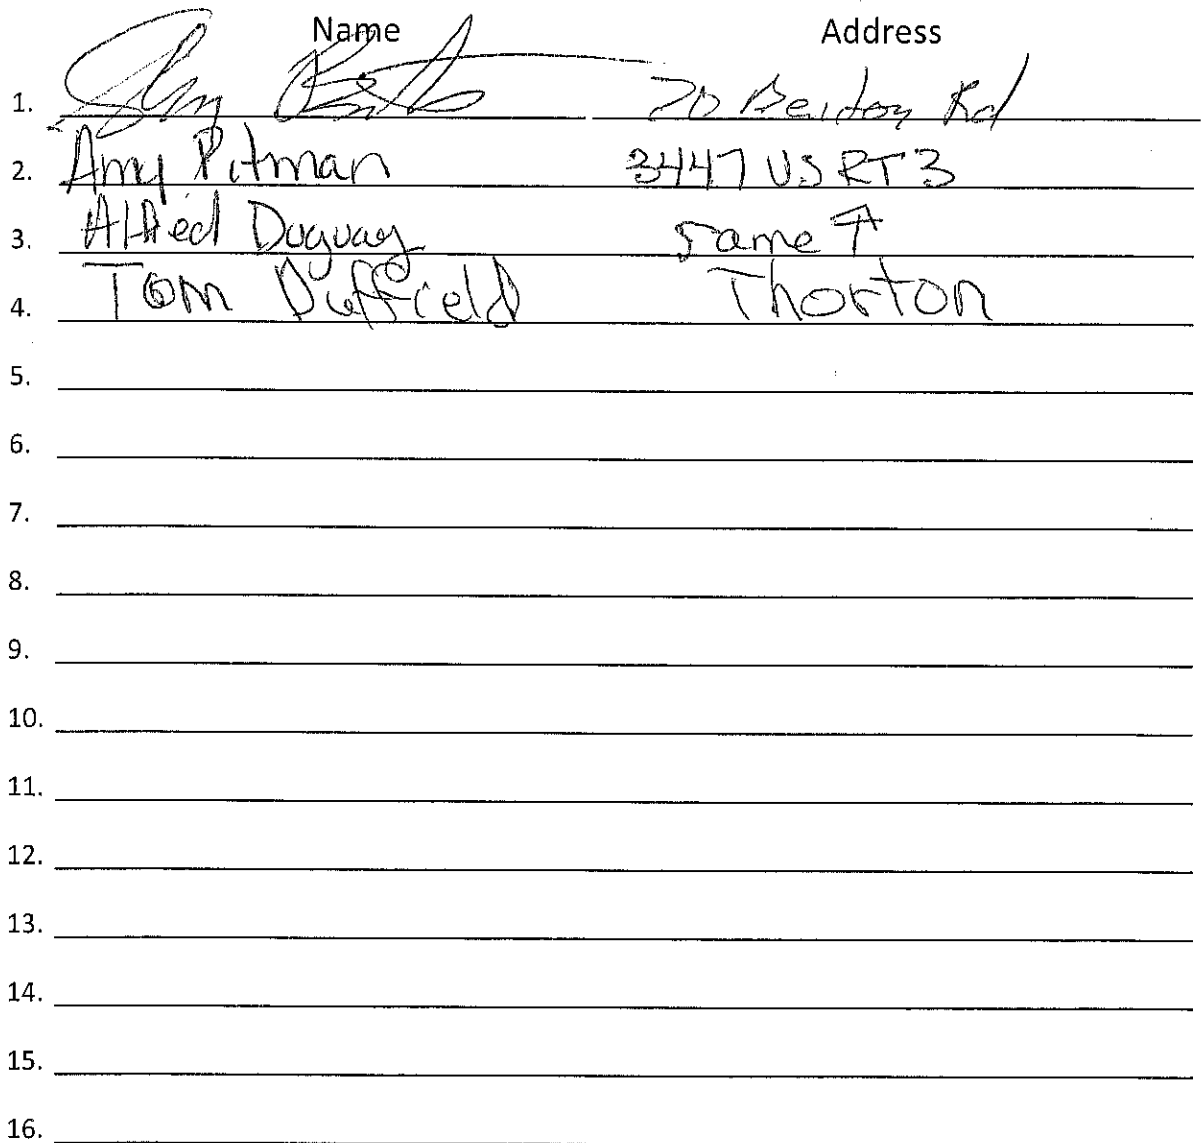 Name Address
1. 70 Rd
2. Amy Pitman 3447 US RT 3
3. Alfred Duguay same ↑
4. Tom Duffield Thorton
5.
6.
7.
8.
9.
10.
11.
12.
13.
14.
15.
16.